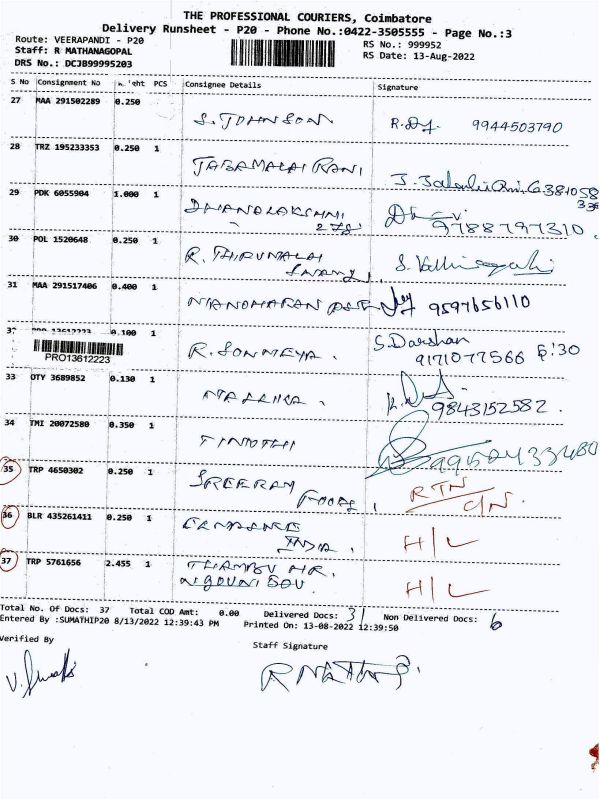 THE PROFESSIONAL COURIERS, Coimbatore
Delivery Runsheet - P20 - Phone No.:0422-3505555 - Page No.:3
Route: VEERAPANDI - P20
RS No.: 999952
Staff: R MATHANAGOPAL
RS Date: 13-Aug-2022
DRS No.: DCJB99995203
S No Consignment No PCS Consignee Details Signature
27 MAA 291502289 0.250
S. JOHNSON
9944503790
28 TRZ 195233353 0.250 1
JABAMALAI RANI
29 PDK 6055904 1.000 1
DHANALAKSHMI
9788797310.
30 POL 1520648 0.250 1
R. THIRUMALAI
SWAMY
31 MAA 291517406 0.400 1
MANOHARAN 9597656110
0.100 1
S. Darshan
9171077566
PRO13612223
R. SONMEYA.
33 OTY 3689852 0.130 1
MALLIKA.
9843152582.
34 TMI 20072580 0.350 1
TIMOTHI
35 TRP 4650302 0.250 1
SREERAM
FOODS, RTN
C/N.
36 BLR 435261411 0.250 1
INDIA. H/L
37 TRP 5761656 2.455 1
H/L
Total No. Of Docs: 37 Total COD Amt: 0.00 Delivered Docs: 31 Non Delivered Docs: 6
Entered By :SUMATHIP20 8/13/2022 12:39:43 PM Printed On: 13-08-2022 12:39:50
Verified By
Staff Signature